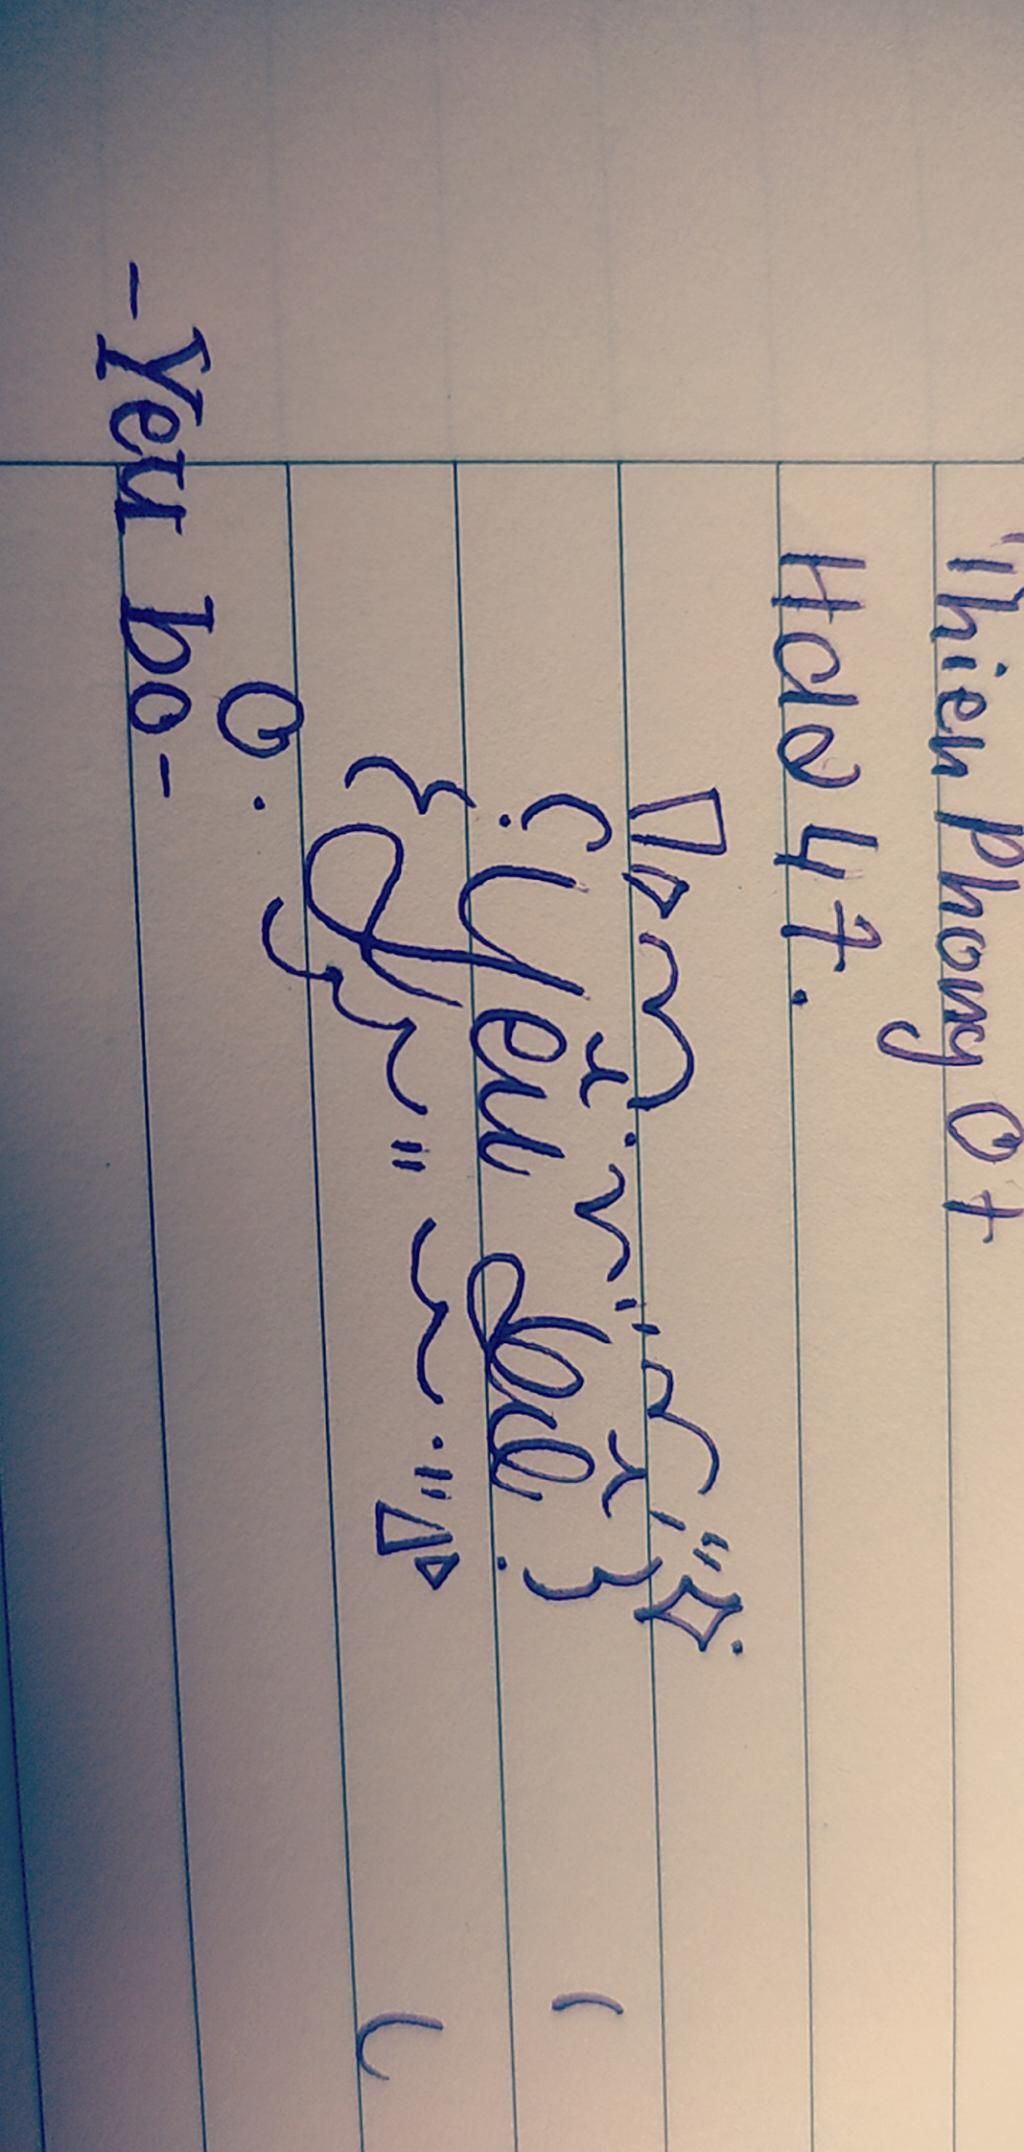 Thien Phong 0 t
Hdo 47.
Yêu
-Yeu bo-